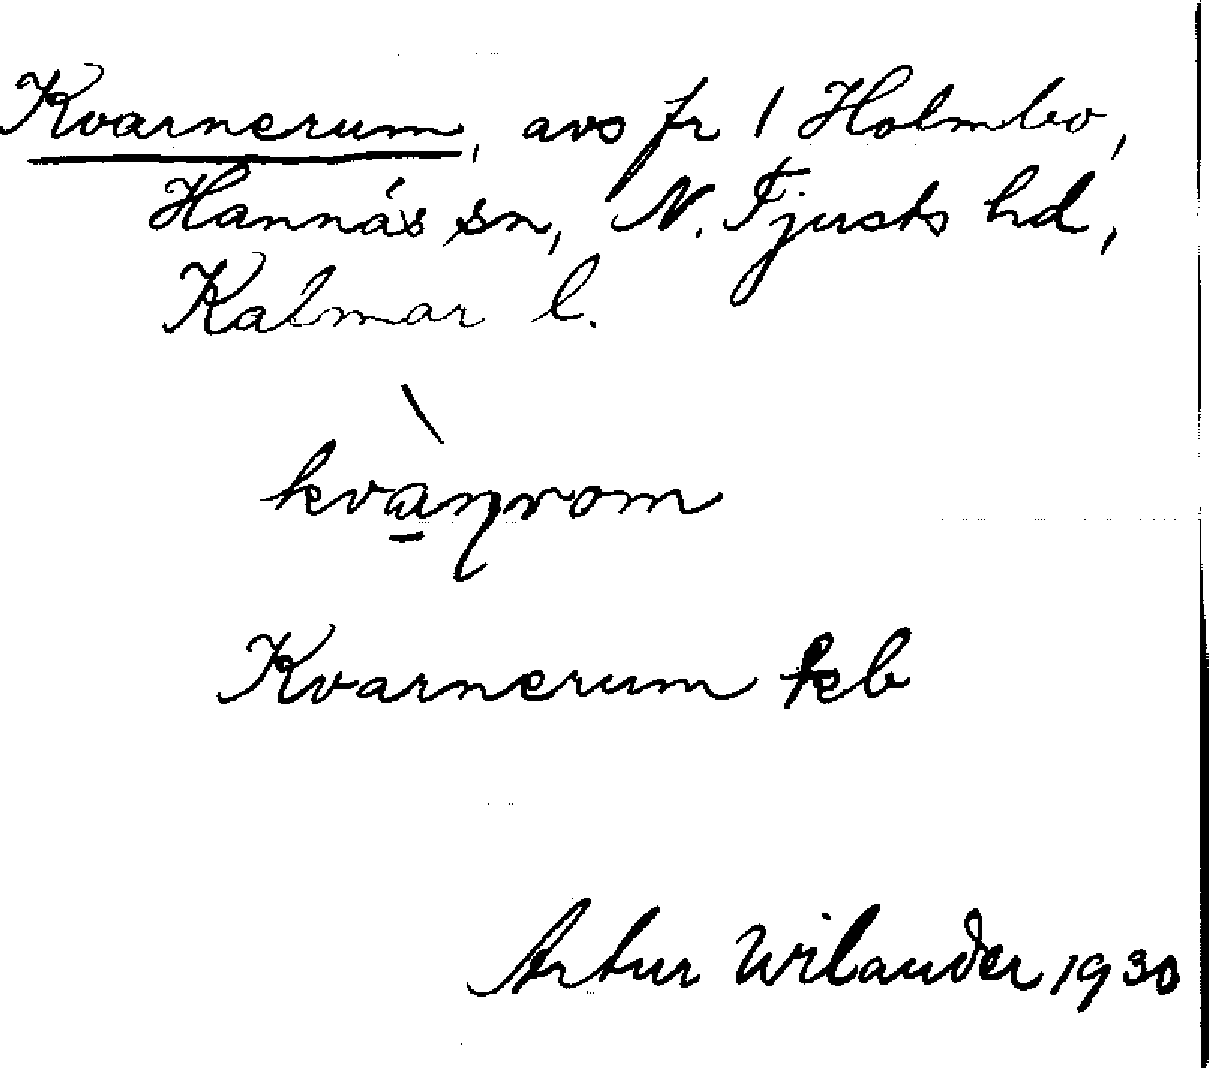 Kvarnerum, avs fr 1 Holmbo,
Hannäs sn, N. Tjusts hd,
Kalmar l.
kvàɳrom
Kvarnerum keb
Artur Wilander 1930